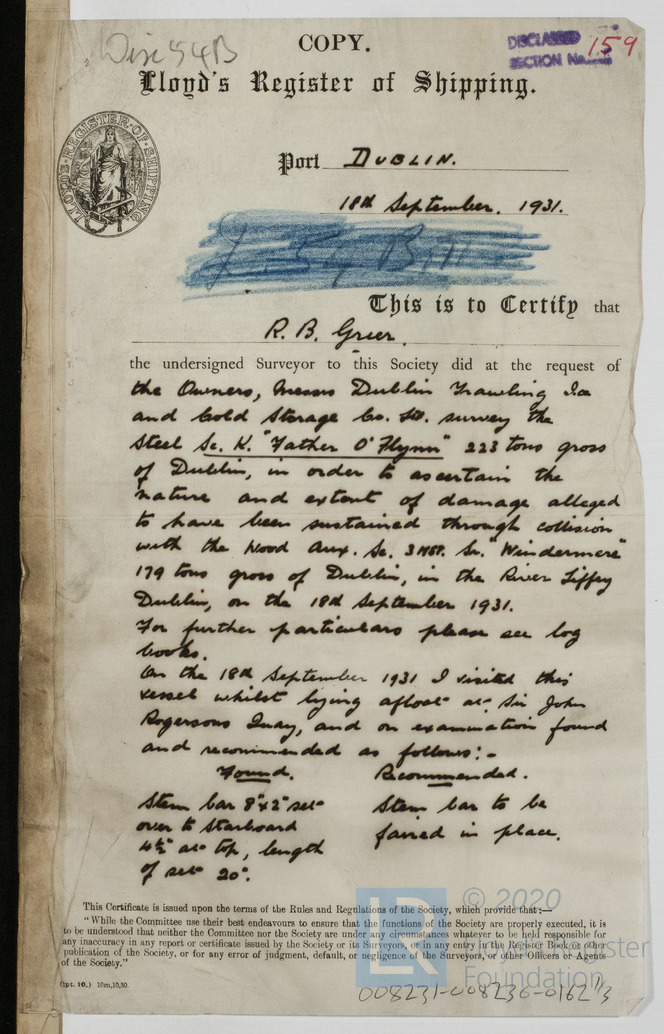 Disc 54B
COPY.
DISCLASSED
SECTION No.
159
Lloyd's Register of Shipping.
LLOYD'S·REGISTER·OF·SHIPPING.
Port DUBLIN.
18th September. 1931.
This is to Certify that
R. B. Greer.
the undersigned Surveyor to this Society did at the request of
the Owners, Messrs Dublin Trawling Ice
and Cold Storage Co. Ltd. survey the
Steel Sc. K. "Father O'Flynn" 223 tons gross
of Dublin, in order to ascertain the
nature and extent of damage alleged
to have been sustained through collision
with the Wood Aux. Sc. 3 Mst. Sr. "Windermere"
179 tons gross of Dublin, in the River Liffey
Dublin, on the 18th September 1931.
For further particulars please see log
books.
On the 18th September 1931 I visited this
vessel whilst lying afloat at Sir John
Rogersons Quay, and on examination found
and recommended as follows:-
Found. Recommended.
Stem bar 8"x2" set Stem bar to be
over to Starboard faired in place.
4½" at top, length
of set 20".
This Certificate is issued upon the terms of the Rules and Regulations of the Society, which provide that:—
"While the Committee use their best endeavours to ensure that the functions of the Society are properly executed, it is
to be understood that neither the Committee nor the Society are under any circumstances whatever to be held responsible for
any inaccuracy in any report or certificate issued by the Society or its Surveyors, or in any entry in the Register Book or other
publication of the Society, or for any error of judgment, default, or negligence of the Surveyors, or other Officers or Agents
of the Society."
(Rpt. 10.) 10m,10,30.
LR
© 2020
Lloyd's Register
Foundation
008231-008236-0162 1/3